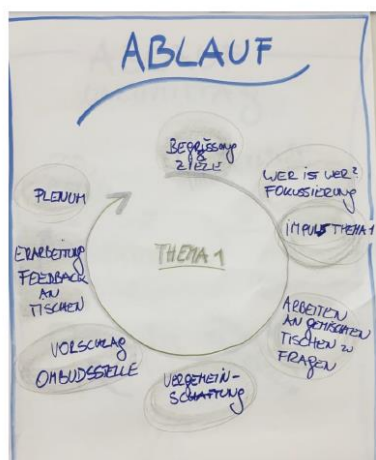 ABLAUF
BEGRÜSSUNG
&
ZIELE
WER IST WER?
FOKUSSIERUNG
IMPULS THEMA 1
ARBEITEN
AN GEMISCHTEN
TISCHEN ZU
FRAGEN
VERGEMEIN-
SCHAFTUNG
VORSCHLAG
OMBUDSSTELLE
ERARBEITUNG
FEEDBACK
AN
TISCHEN
PLENUM
THEMA 1